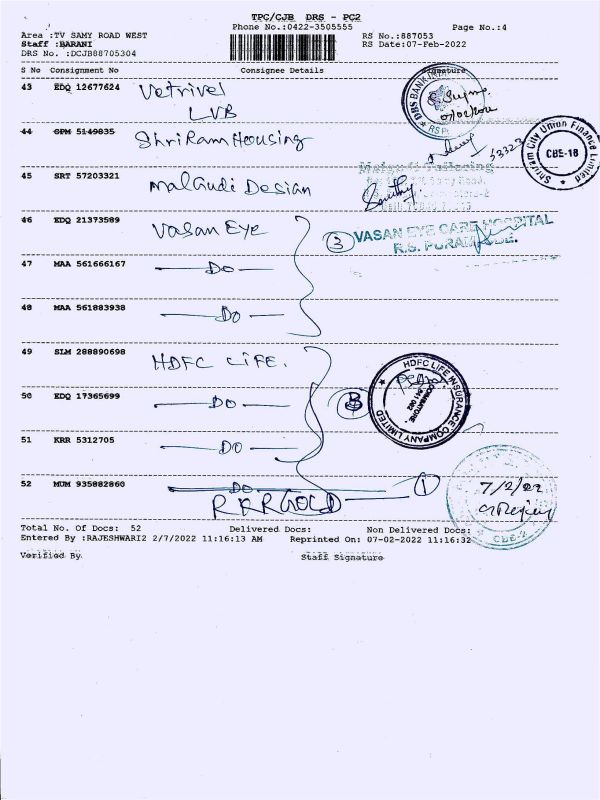 TPC/CJB DRS - PC2
Phone No.:0422-3505555 Page No.:4
Area :TV SAMY ROAD WEST RS No.:887053
Staff :BARANI RS Date:07-Feb-2022
DRS No. :DCJB88705304
S No Consignment No Consignee Details Signature
43 EDQ 12677624 Vetrivel
LVB
DBS BANK INDIA
07/02/2022
44 GPM 5149835 ShriRam Housing
53323
Shriram City Union Finance Limited
CBE-18
45 SRT 57203321 Malgudi Design
46 EDQ 21373589 Vasan Eye
3 VASAN EYE CARE HOSPITAL
R.S. PURAM, CBE.
47 MAA 561666167 — Do —
48 MAA 561883938 — Do —
49 SLM 288890698 HDFC LIFE.
HDFC LIFE INSURANCE COMPANY LIMITED
COIMBATORE
50 EDQ 17365699 — Do —
51 KRR 5312705 — Do —
52 MUM 935882860 — Do —
RRR GOLD 1
7/2/22
CBE-2
Total No. Of Docs: 52 Delivered Docs: Non Delivered Docs:
Entered By :RAJESHWARI2 2/7/2022 11:16:13 AM Reprinted On: 07-02-2022 11:16:32
Verified By Staff Signature